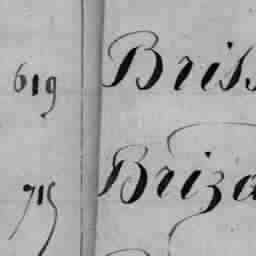 619 Briss
715 Briza